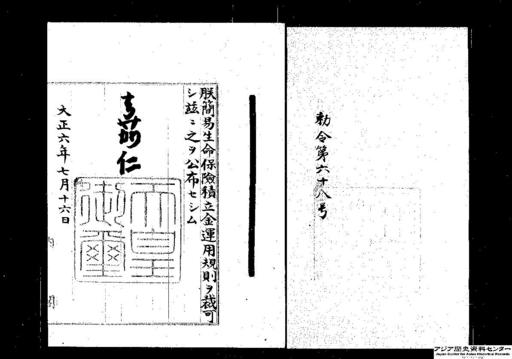 勅令第六十八号
朕簡易生命保険積立金運用規則ヲ裁可
シ茲ニ之ヲ公布セシム
嘉仁
天皇御璽
大正六年七月十六日
アジア歴史資料センター
Japan Center for Asian Historical Records